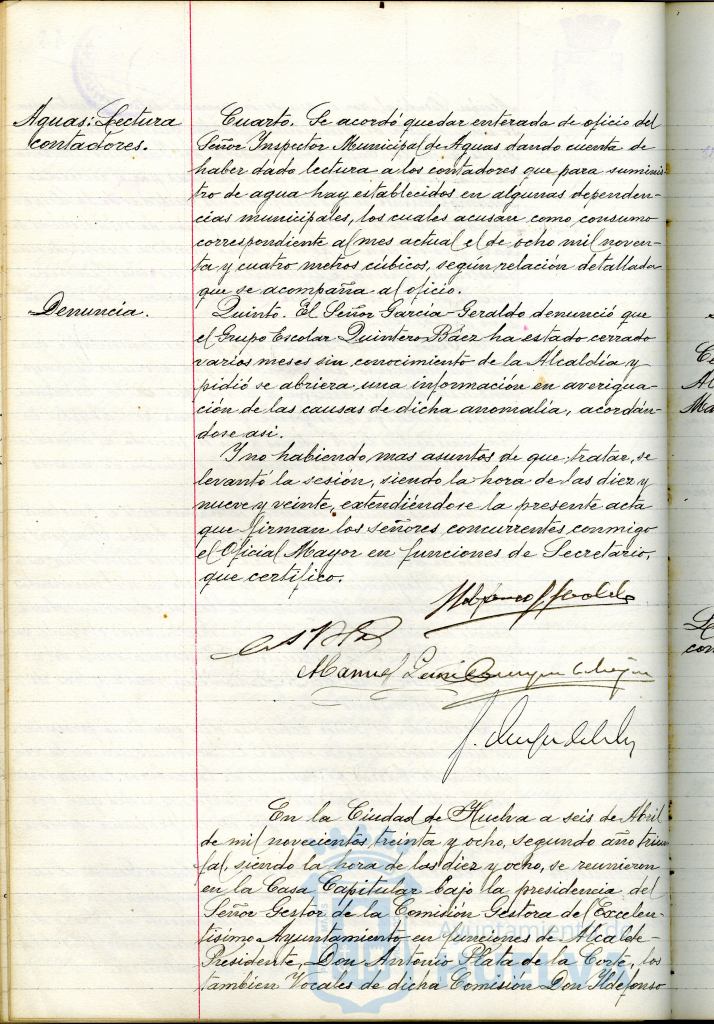 Aguas: Lectura
contadores.
Cuarto. Se acordó quedar enterada de oficio del
Señor Inspector Municipal de Aguas dando cuenta de
haber dado lectura a los contadores que para suminis-
tro de agua hay establecidos en algunas dependen-
cias municipales, los cuales acusan como consumo
correspondiente al mes actual el de ocho mil noven-
ta y cuatro metros cúbicos, según relación detallada
que se acompaña al oficio.
Denuncia.
Quinto. El Señor García-Geraldo denunció que
el Grupo Escolar Quintero Báez ha estado cerrado
varios meses sin conocimiento de la Alcaldía y
pidió se abriera una información en averigua-
ción de las causas de dicha anomalía, acordán-
dose asi.
Y no habiendo mas asuntos de que tratar, se
levantó la sesión, siendo la hora de las diez y
nueve y veinte, extendiéndose la presente acta
que firman los señores concurrentes conmigo
el Oficial Mayor en funciones de Secretario,
que certifico.
Manuel
En la Ciudad de Huelva a seis de Abril
de mil novecientos treinta y ocho, segundo año triun-
fal, siendo la hora de las diez y ocho, se reunieron
en la Casa Capitular bajo la presidencia del
Señor Gestor de la Comisión Gestora del Excelen-
tísimo Ayuntamiento en funciones de Alcalde-
Presidente, Don Antonio Plata de la Corte, los
tambien Vocales de dicha Comisión Don Ildefonso
Ayuntamiento de
Huelva